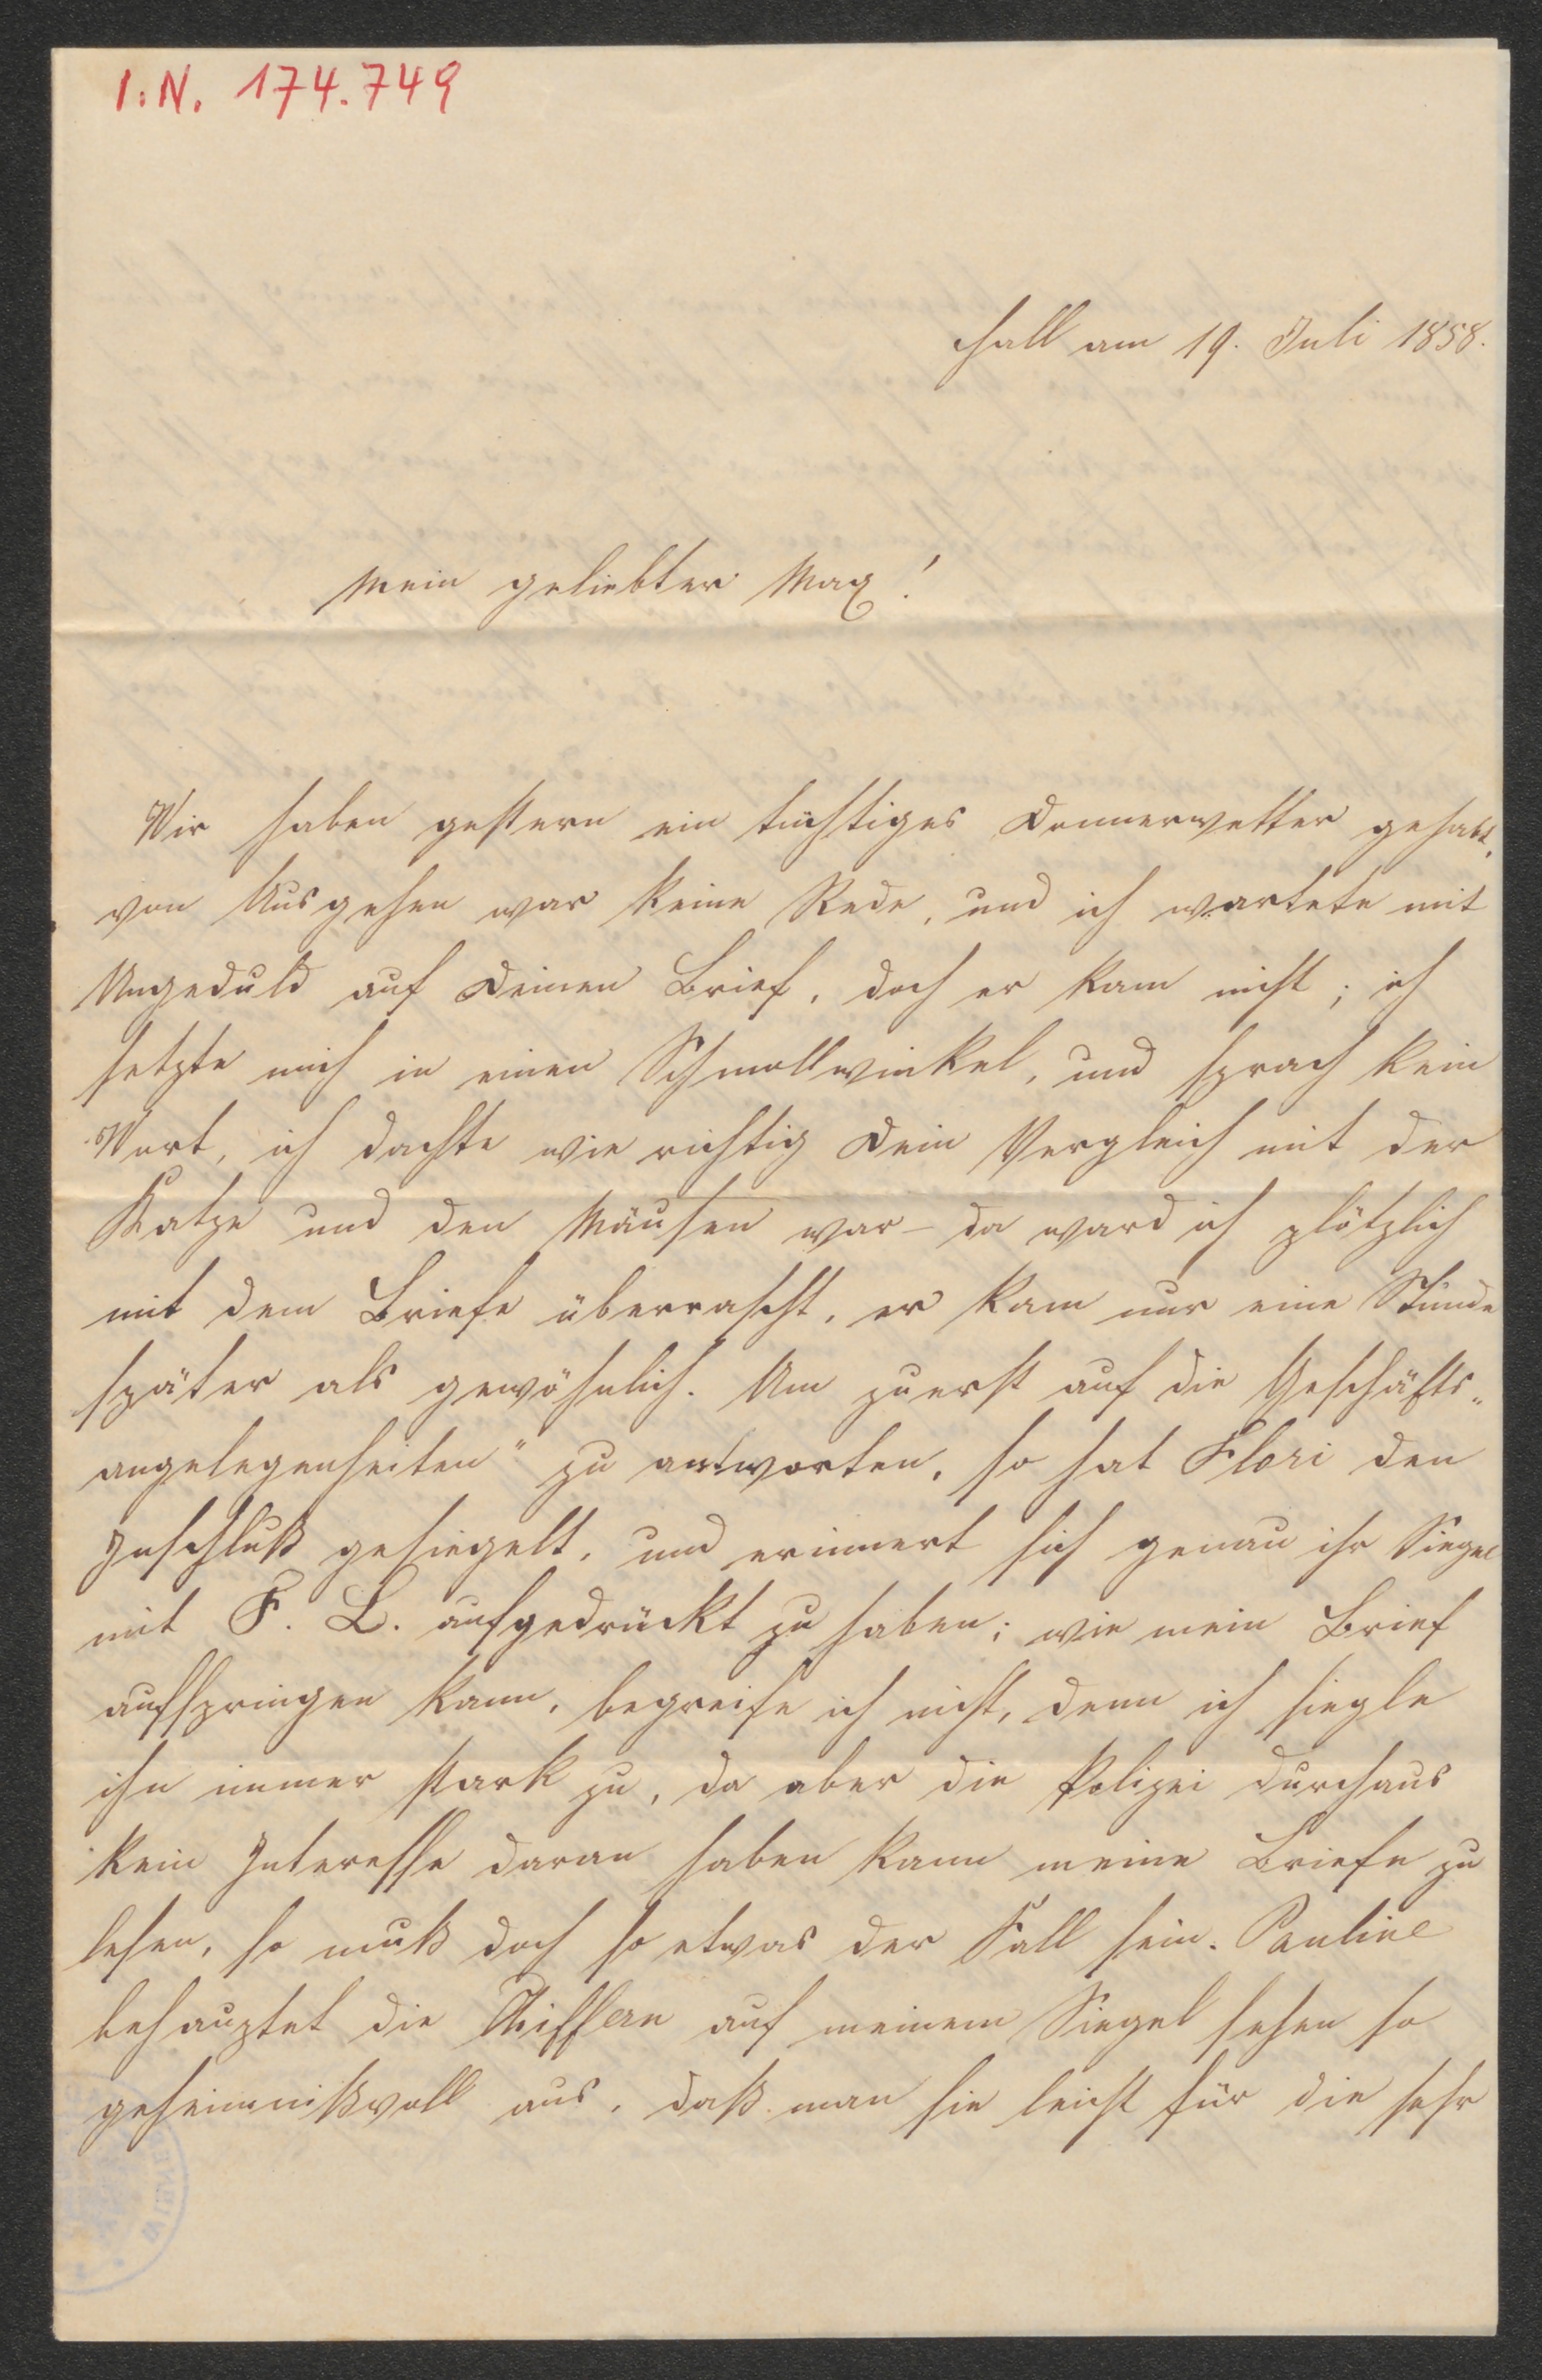 I.N. 174.749
Hall am 19. Juli 1858.
Mein geliebter Max!
Wir haben gestern ein tüchtiges Donnerwetter gehabt,
von Ausgehen war keine Rede, und ich wartete mit
Ungeduld auf Deinen Brief, doch er kam nicht; ich
setzte mich in einen Schmollwinkel, und sprach kein
Wort, ich dachte wie richtig Dein Vergleich mit der
Katze und den Mäusen war – da ward ich plötzlich
mit dem Briefe überrascht, er kam nur eine Stunde
später als gewöhnlich. Um zuerst auf die Geschäfts„
angelegenheiten" zu antworten, so hat Flori den
Inschluß gesiegelt, und erinnert sich genau ihr Siegel
mit F. L. aufgedrückt zu haben; wie mein Brief
aufspringen kann, begreife ich nicht, denn ich siegle
ihn immer stark zu, da aber die Polizei durchaus
kein Interesse daran haben kann meine Briefe zu
lesen, so muß doch so etwas der Fall sein. Pauline
behauptet die Chiffern auf meinem Siegel sehen so
geheimnißvoll aus, daß man sie leicht für die sehr